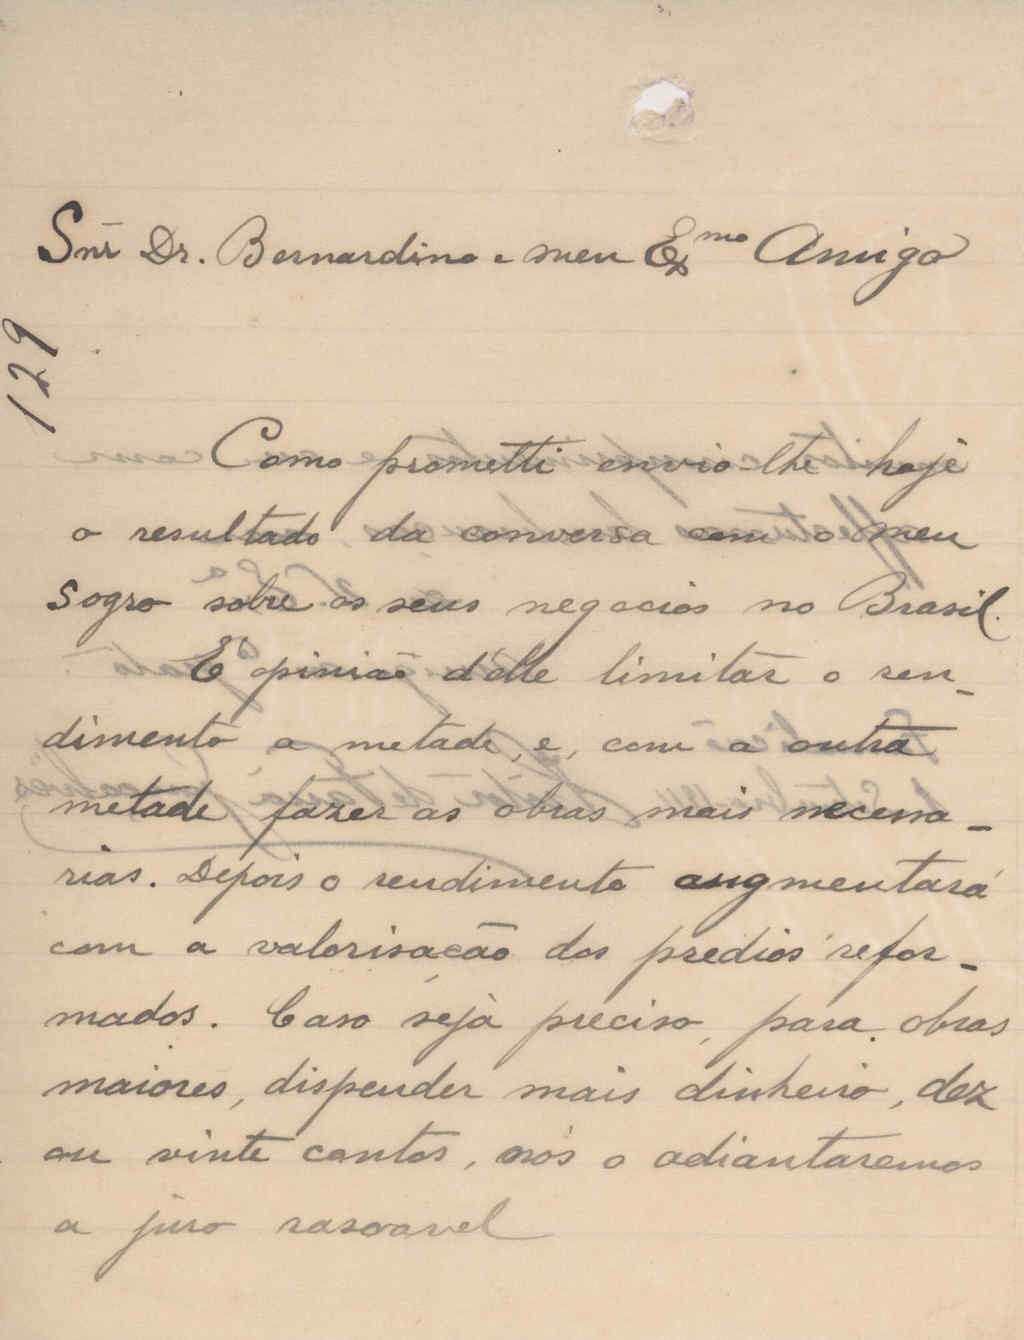 Snr Dr. Bernardino e meu Exmo Amigo
129
Como prometti envio lhe hoje
o resultado da conversa com o meu
sogro sobre os seus negocios no Brasil.
É opinião d'elle limitar o ren-
dimento a metade, e, com a outra
metade fazer as obras mais necessa-
rias. Depois o rendimento augmentará
com a valorisação dos predios refor-
mados. Caso seja preciso, para obras
maiores, dispender mais dinheiro, dez
ou vinte contos, nós o adiantaremos
a juro rasoavel